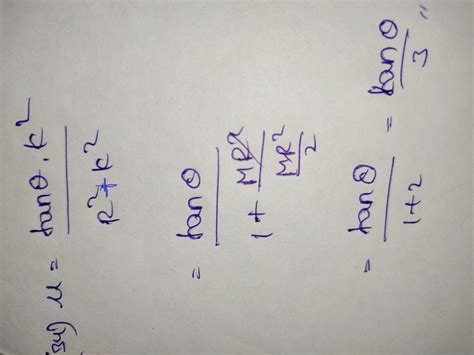 34) μ = tanθ.k² / R²+k²
= tanθ / 1 + MR²/(MR²/2)
= tanθ / 1+2 = tanθ / 3 "